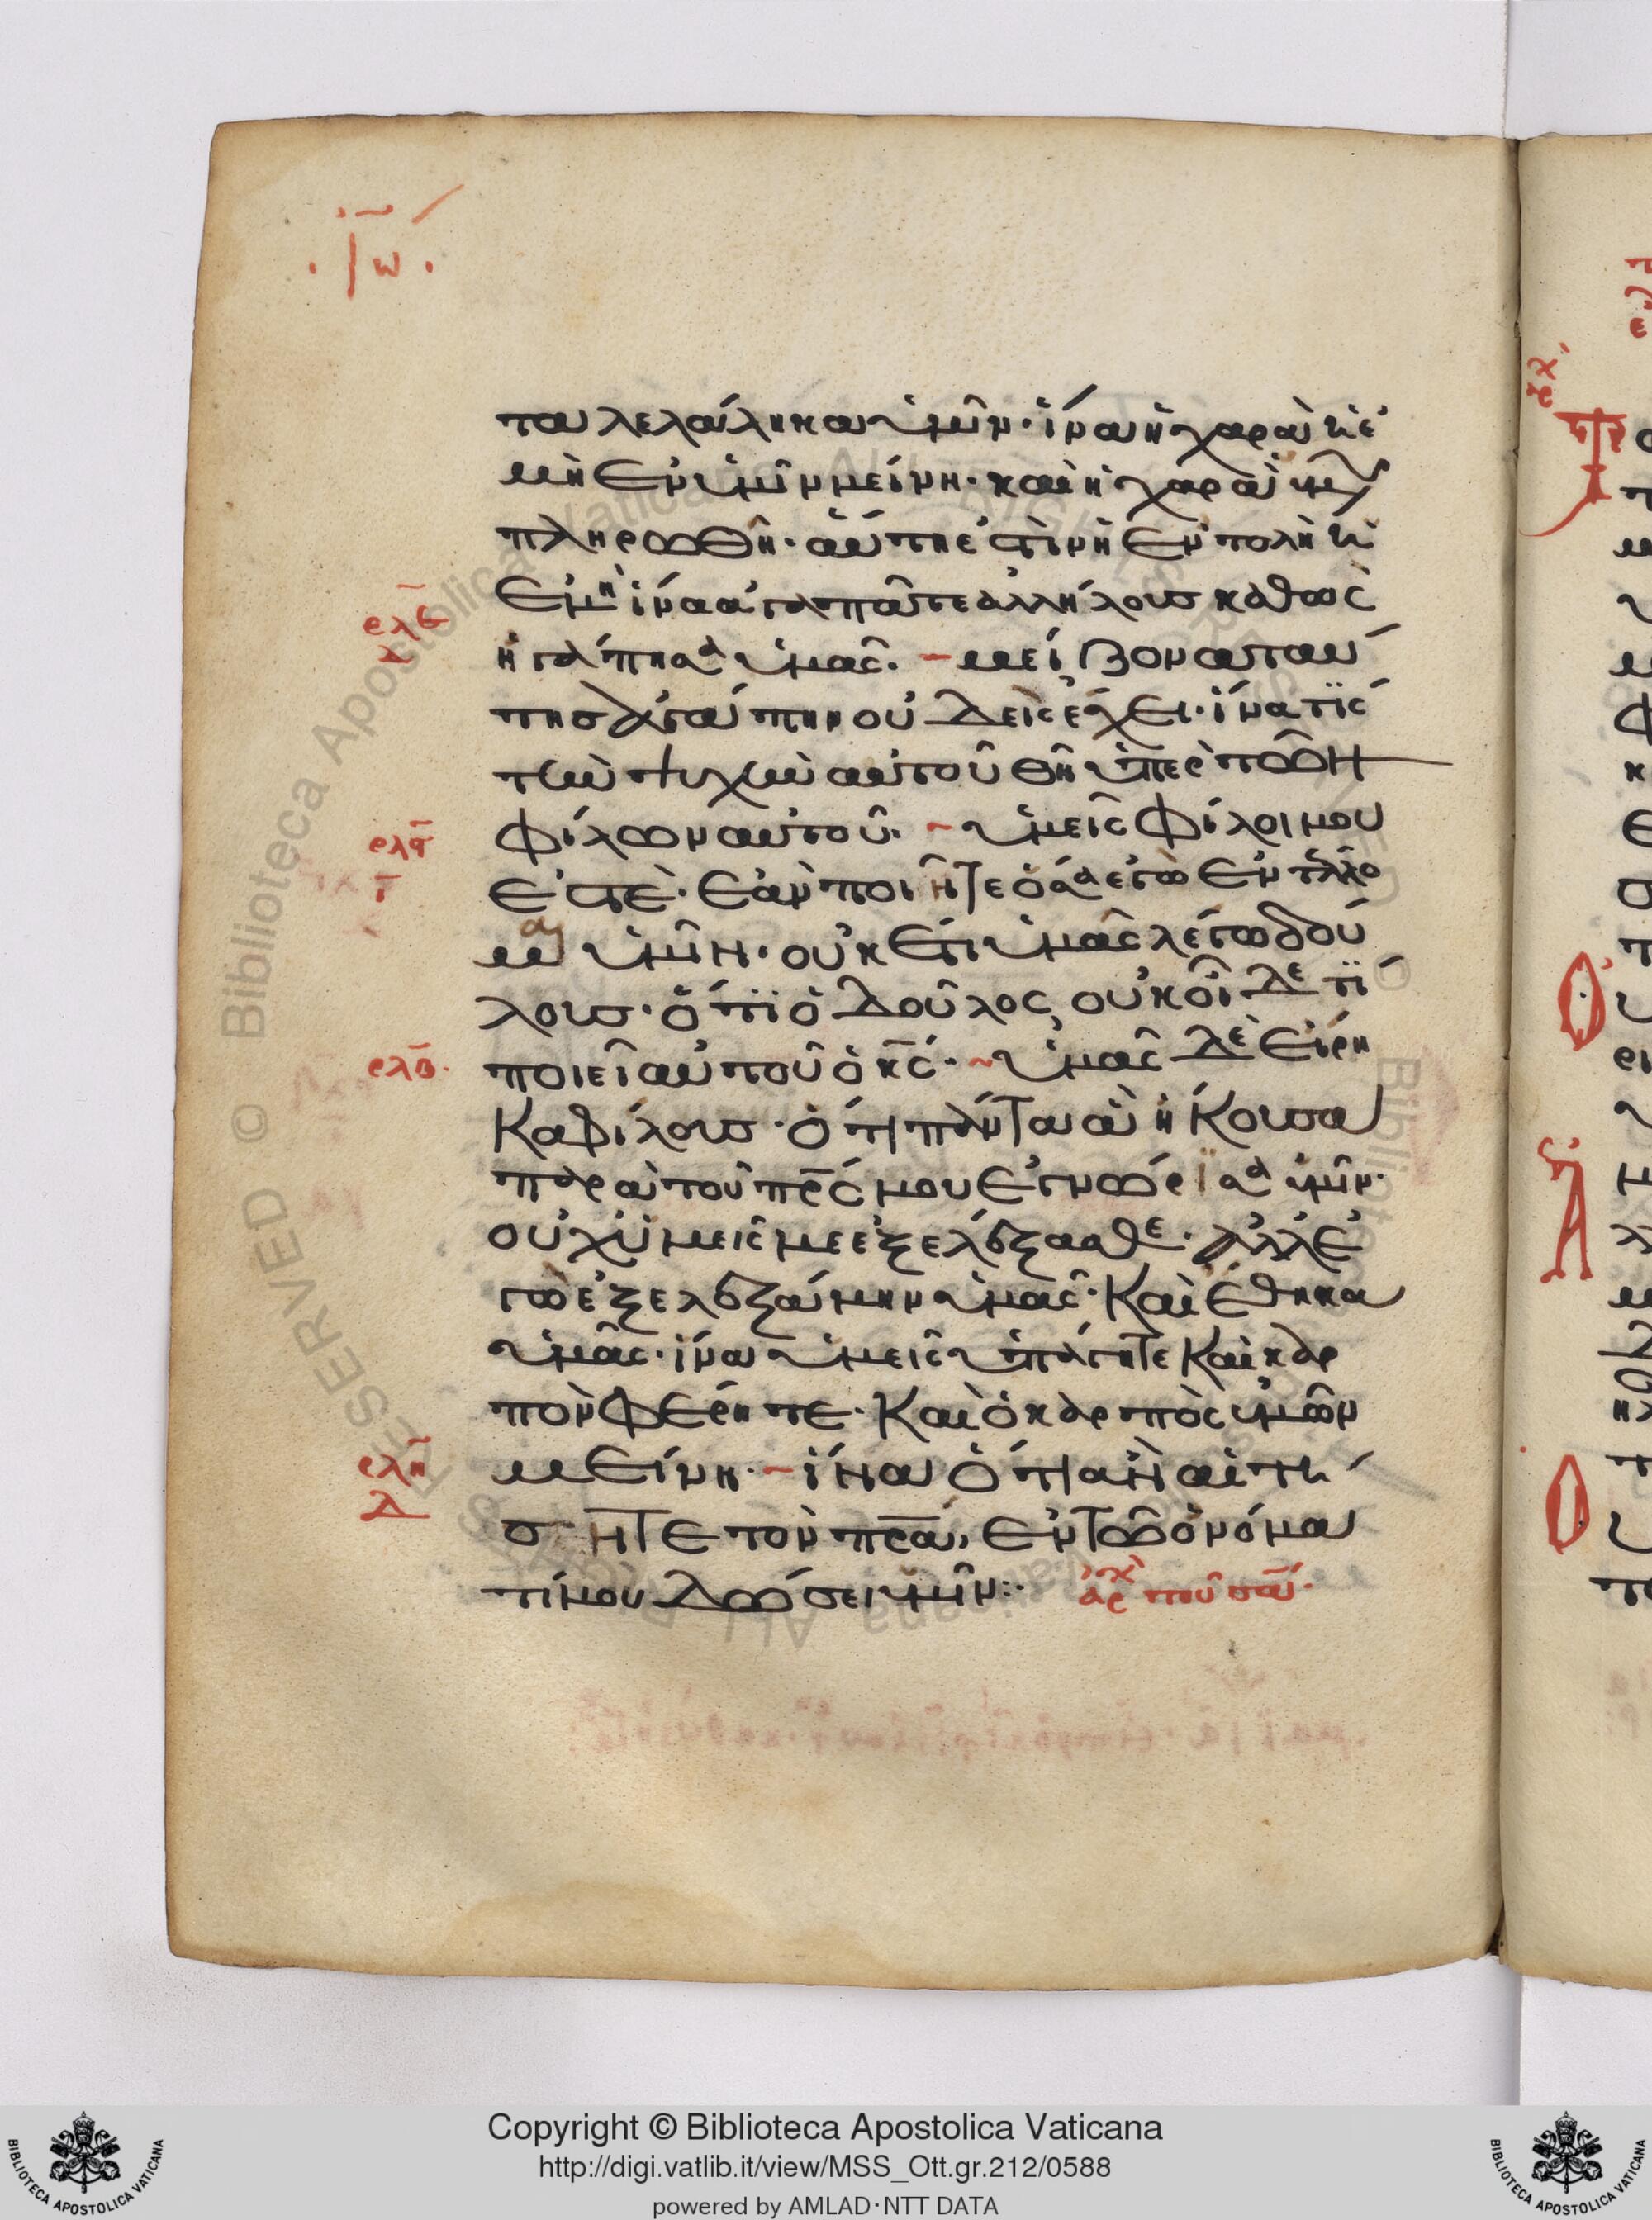 ·Ἰω·
τα λελάληκα ὑμῖν· ἵνα ἡ χαρὰ ἡ ἐ
μὴ ἐν ὑμῖν μείνη· καὶ ἡ χαρὰ ὑμῶν
πληρωθῆ· αὕτη ἐστὶν ἡ ἐντολὴ ἡ
ἐμὴ ἵνα ἀγαπᾶτε ἀλλήλους καθὼς
ἠγάπησα ὑμᾶς. μείζονα ταύ
της ἀγάπην οὐδεὶς ἔχει· ἵνα τὶς
τὴν ψυχὴν αὐτοῦ θῆ ὑπὲρ τῶν
φίλων αὐτοῦ. ὑμεῖς φίλοι μου
ἐστὲ· ἐὰν ποιῆτε ὅσα ἐγὼ ἐντέλλο
μαι ὑμῖν· οὐκ ἔτι ὑμᾶς λέγω δού
λους· ὅτι ὁ δοῦλος οὐκ οἶδε τί
ποιεῖ αὐτοῦ ὁ κς· ὑμᾶς δὲ εἴρη
κα φίλους· ὅτι πάντα ἃ ἤκουσα
παρὰ τοῦ πρς μου ἐγνώρισα ὑμῖν·
οὐχ ὑμεῖς με ἐξελέξασθε· ἀλλ' ἐ
γὼ ἐξελεξάμην ὑμᾶς· καὶ ἔθηκα
ὑμᾶς· ἵνα ὑμεῖς ὑπάγητε καὶ καρ
πὸν φέρητε· καὶ ὁ καρπὸς ὑμῶν
μείνη· ἵνα ὅτι ἂν αἰτή
σητε τὸν πρα, ἐν τῶ ὀνόμα
τί μου δώσει ὑμῖν:·
ρλε
ρλς
γ
ρλζ·
ρλη
δ
Copyright © Biblioteca Apostolica Vaticana
http://digi.vatlib.it/view/MSS_Ott.gr.212/0588
powered by AMLAD·NTT DATA